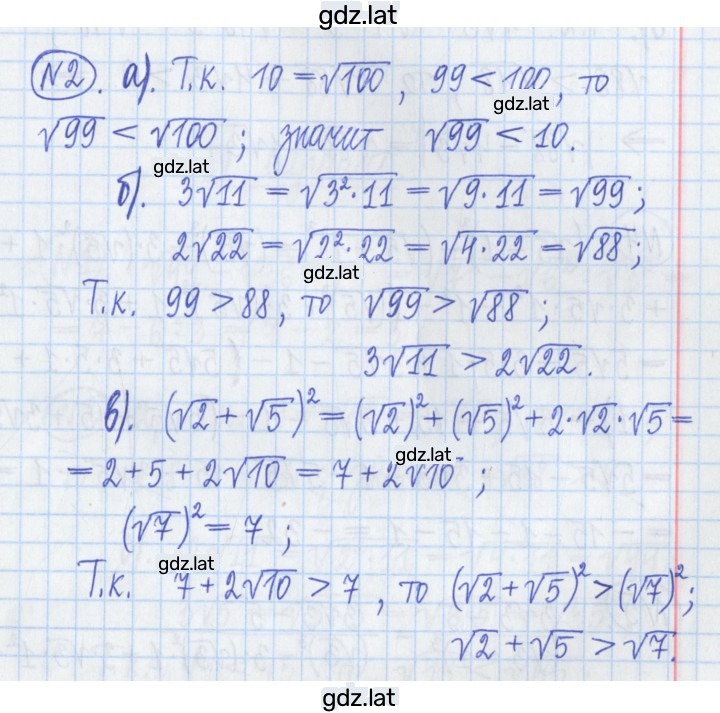 gdz.lat
№2. а). Т.к. 10 = √100, 99 < 100, то
gdz.lat
√99 < √100; значит √99 < 10.
gdz.lat
б). 3√11 = √3²·11 = √9·11 = √99;
2√22 = √2²·22 = √4·22 = √88;
gdz.lat
Т.к. 99 > 88, то √99 > √88;
3√11 > 2√22.
в). (√2 + √5)² = (√2)² + (√5)² + 2·√2·√5 =
gdz.lat
= 2 + 5 + 2√10 = 7 + 2√10;
(√7)² = 7;
gdz.lat
Т.к. 7 + 2√10 > 7, то (√2 + √5)² > (√7)²;
√2 + √5 > √7.
gdz.lat